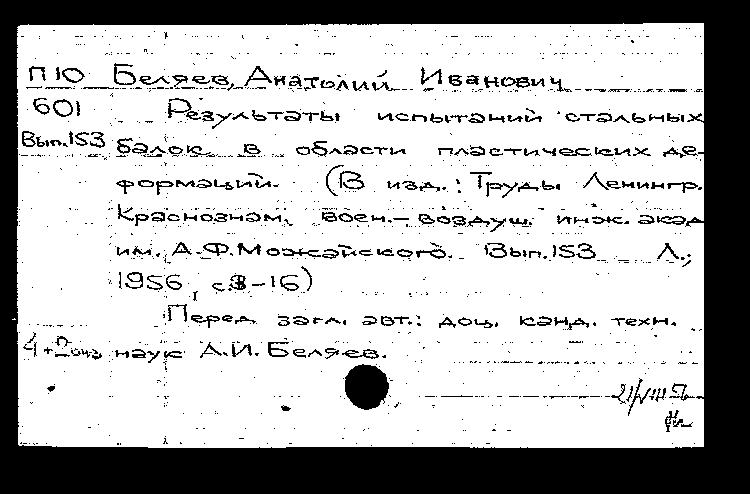 П10 Беляев, Анатолий Иванович
601 Результаты испытаний стальных
Вып.153 балок в области пластических де-
формаций. (В изд.: Труды Ленингр.
Краснознам. воен.-воздуш. инж. акад
им. А.Ф.Можайского. Вып.153 Л.,
1956, с.3-16)
Перед загл. авт.: доц. канд. техн.
наук А.И.Беляев.
21/VIII 56